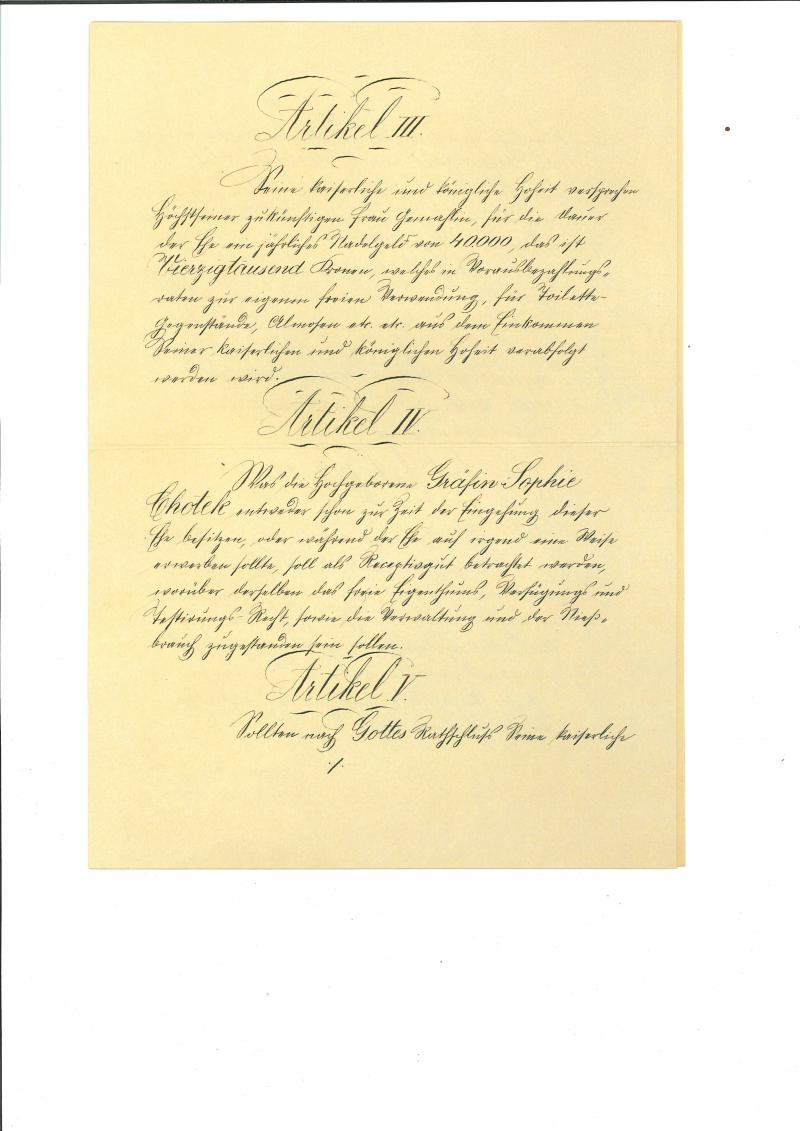 Artikel III.
Seine kaiserliche und königliche Hoheit versprechen
Höchstseiner zukünftigen Frau Gemahlin, für die Dauer
der Ehe ein jährliches Nadelgeld von 40.000, das ist
Vierzigtausend Kronen, welches in Vorausbezahlungs-
raten zur eigenen freien Verwendung, für Toilette-
Gegenstände, Almosen etc. etc. aus dem Einkommen
Seiner kaiserlichen und königlichen Hoheit verabfolgt
werden wird.
Artikel IV.
Was die Hochgeborene Gräfin Sophie
Chotek entweder schon zur Zeit der Eingehung dieser
Ehe besitzen, oder während der Ehe auf irgend eine Weise
erwerben sollte, soll als Receptivgut betrachtet werden,
worüber derselben das freie Eigenthums, Verfügungs und
Testirungs-Recht, sowie die Verwaltung und der Nieß-
brauch zugestanden sein sollen.
Artikel V.
Sollten nach Gottes Rathschluß Seine kaiserliche
./.